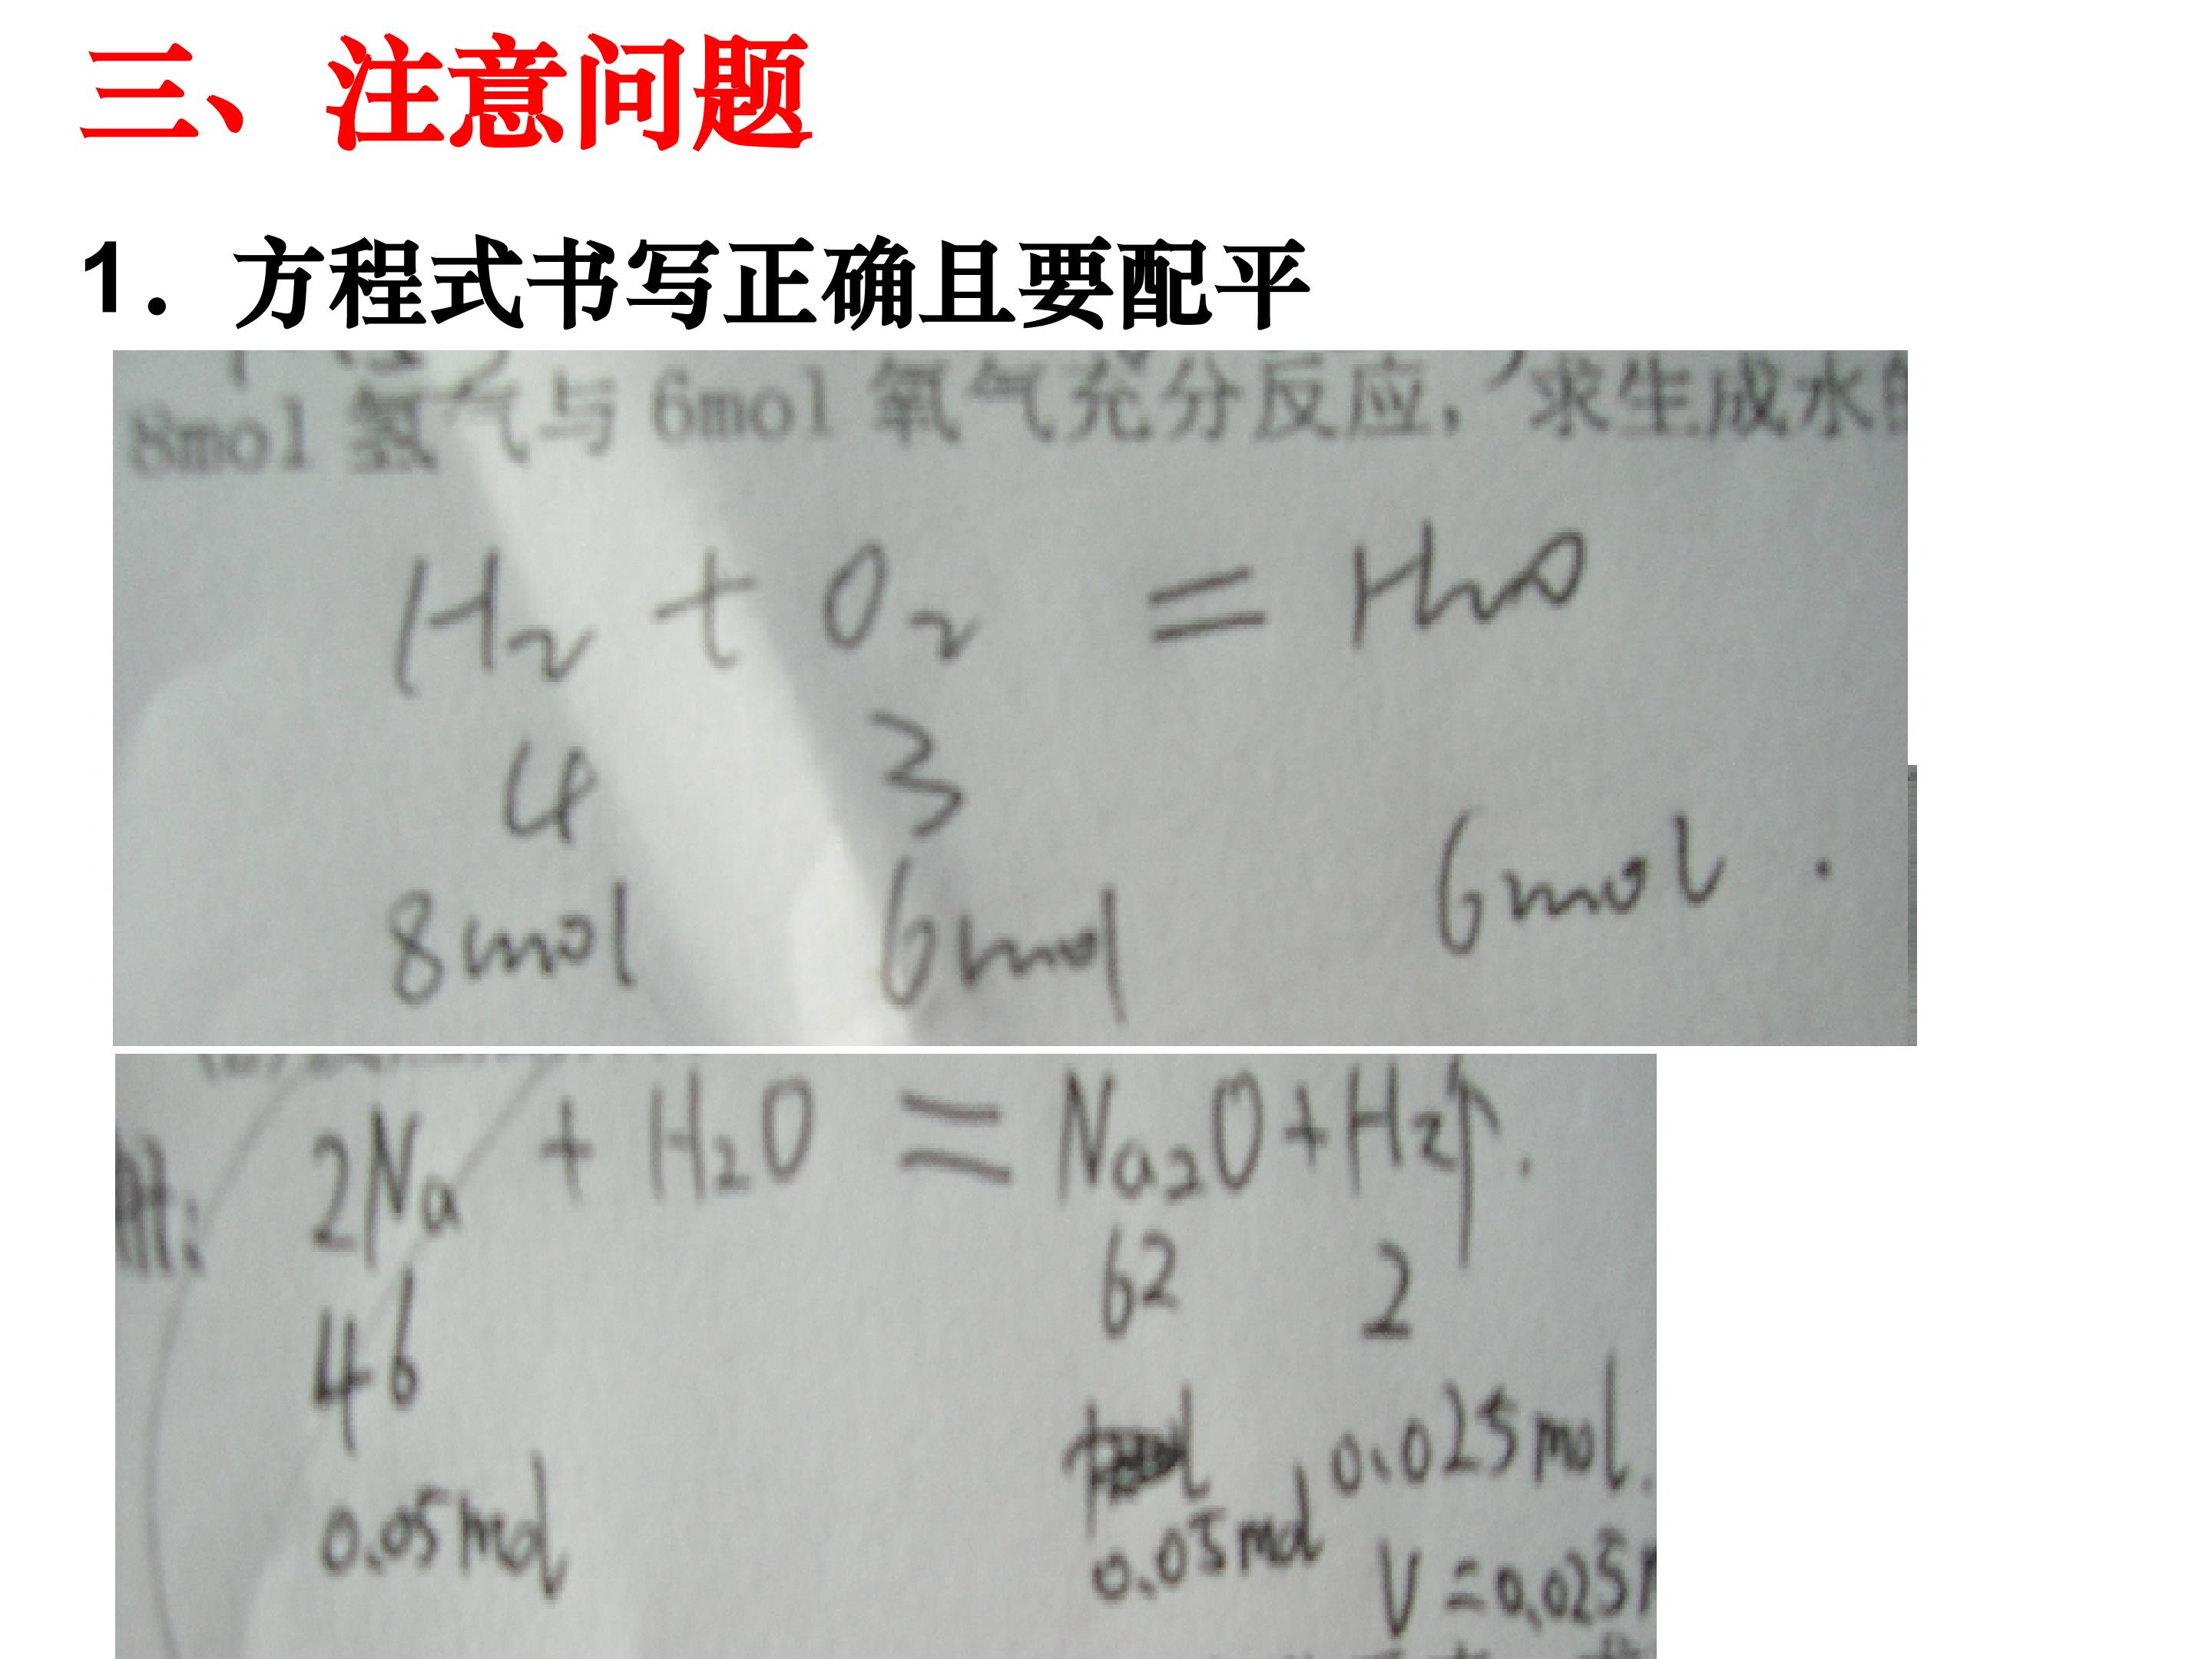 三、注意问题
1．方程式书写正确且要配平
8mol 氢气与 6mol 氧气充分反应，求生成水的
H₂ + O₂ = H₂O
4 3
8mol 6mol 6mol.
2Na + H₂O = Na₂O+H₂↑.
46 62 2
0.05mol 0.05mol 0.025mol.
V=0.025